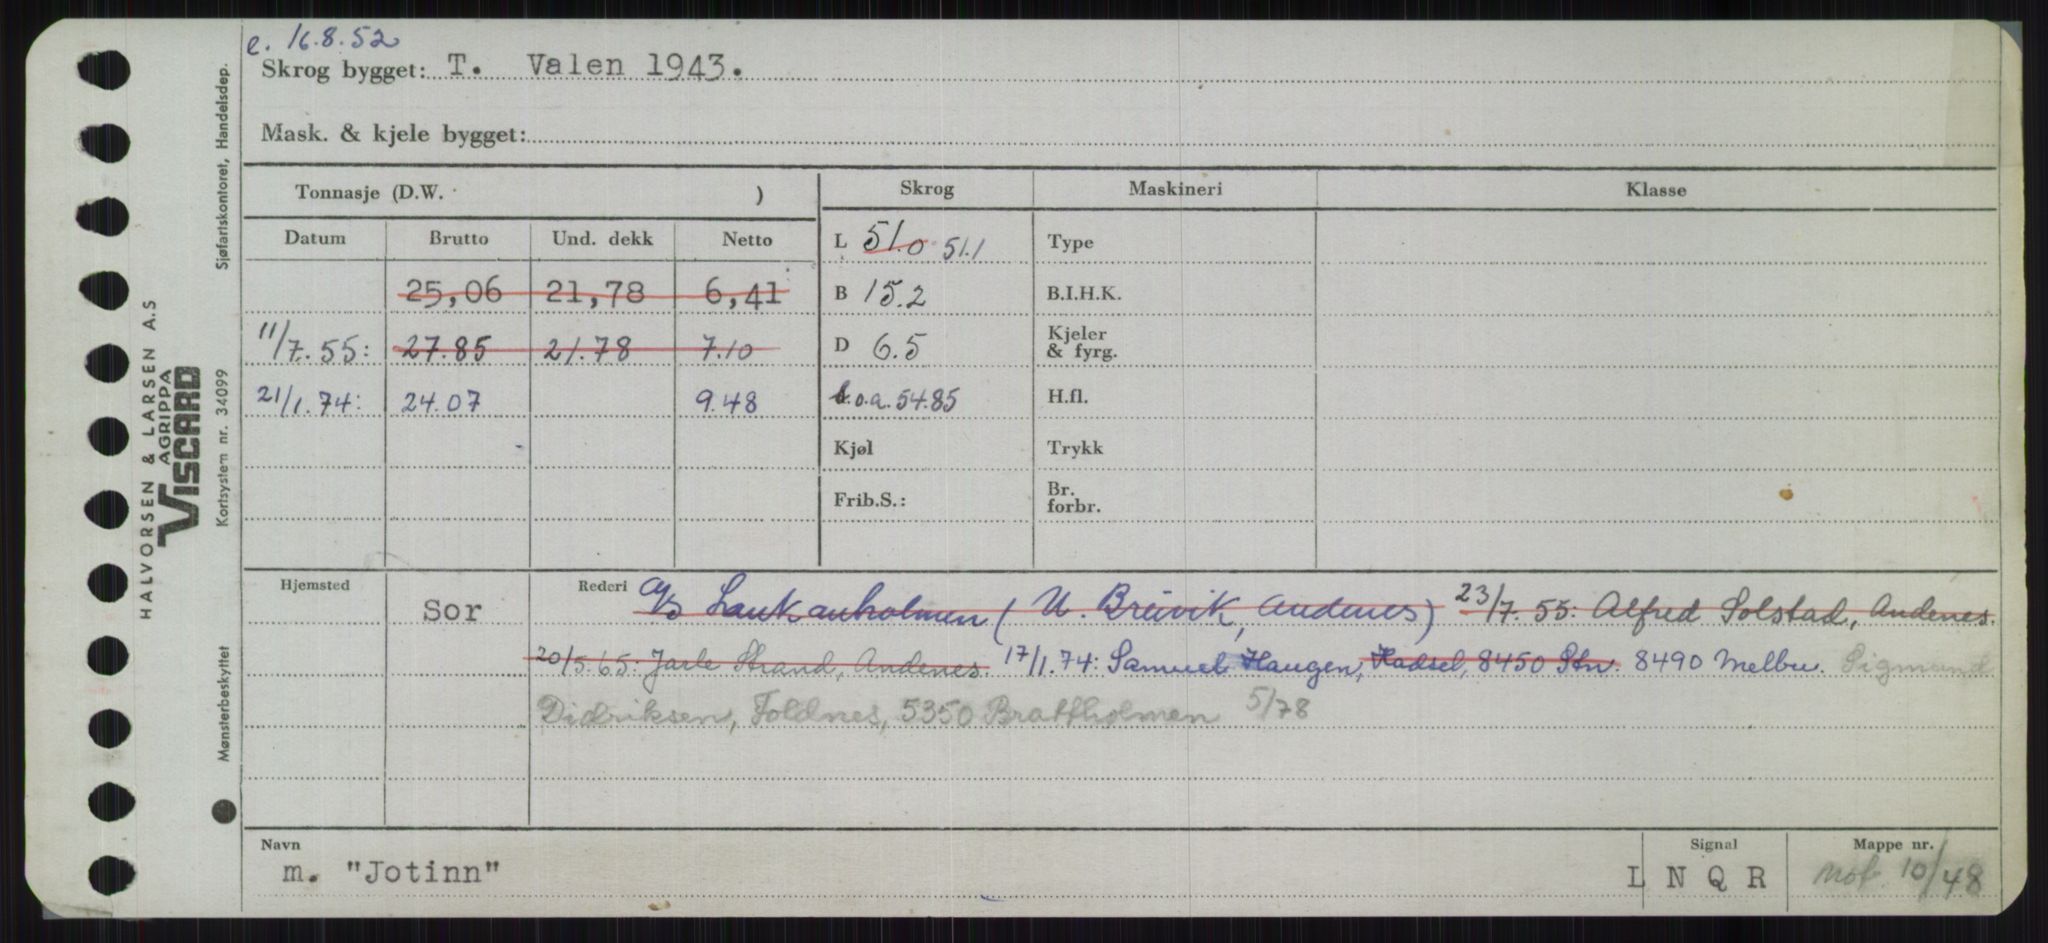 e. 16.8.52
Skrog bygget: T. Valen 1943.
Mask. & kjele bygget:
Tonnasje (D.W. )
Skrog Maskineri Klasse
Datum Brutto Und. dekk Netto
L 51.0 51.1 Type
25,06 21,78 6,41 B 15.2 B.I.H.K.
11/7.55: 27.85 21.78 7.10 D 6.5 Kjeler & fyrg.
21/1.74: 24.07 9.48 l.o.a. 54.85 H.fl.
Kjøl Trykk
Frib.S.: Br. forbr.
Hjemsted Sor Rederi A/S Laukanholmen (U. Breivik, Andenes) 23/7.55: Alfred Solstad, Andenes.
20/5.65: Jarle Strand, Andenes. 17/1.74: Samuel Haugen, Hadsel, 8450 Stn. 8490 Melbu. Sigmund
Didriksen, Foldnes, 5350 Brattholmen 5/78
Navn Signal Mappe nr.
m. "Jotinn" L N Q R 10/48
HALVORSEN & LARSEN A.S
AGRIPPA
VISCARD
Mønsterbeskyttet Kortsystem nr. 34099 Sjøfartskontoret, Handelsdep.